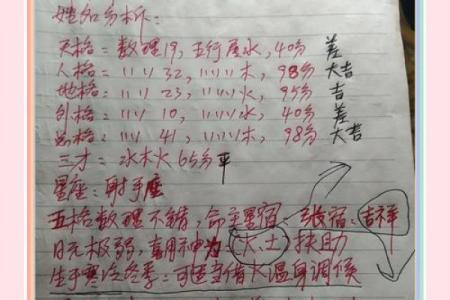 姓名分析:
天格:数理19,五行属水,40分 差
人格:〃〃32,〃〃木,98分 大吉
地格:〃〃23,〃〃火,95分 吉
外格:〃〃10,〃〃水,40分 差
总格:〃〃41,〃〃木,98分 大吉
三才:水木火65分平
星座:射手座
五格数理不错,命主星宿:张宿:吉祥
日元极弱,喜用神为(火.土)扶助
生于寒冷冬季:可适当借火温身调候